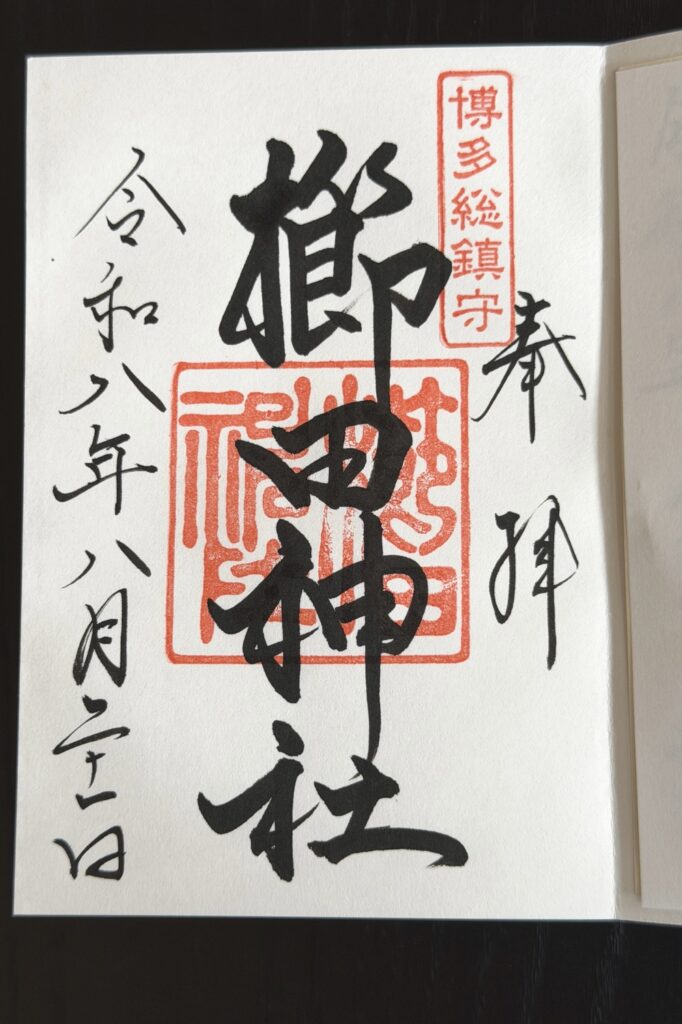 博多総鎮守
奉拝
櫛田神社
令和八年八月二十一日